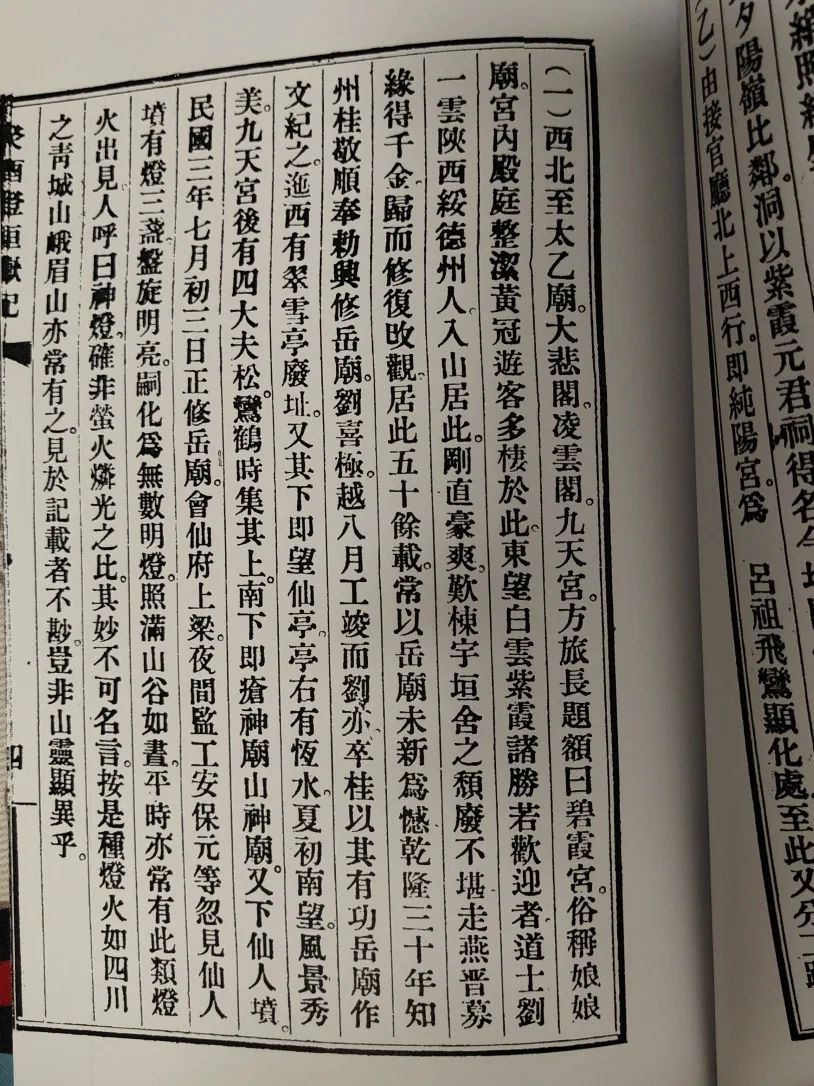 夕陽嶺比鄰洞以紫霞元君祠得名
乙）由接官廳北上西行。即純陽宮。為　呂祖飛鸞顯化處。至此又分二路
（一）西北至太乙廟。大悲閣。凌雲閣。九天宮。方旅長題額曰碧霞宮。俗稱娘娘
廟。宮內殿庭整潔黃冠遊客多棲於此。東望白雲紫霞諸勝若歡迎者道士劉
一雲陝西綏德州人。入山居此。剛直豪爽。歎棟宇垣舍之頹廢不堪走燕晉募
緣得千金。歸而修復改觀。居此五十餘載。常以岳廟未新爲憾乾隆三十年知
州桂敬順奉勅興修岳廟。劉喜極。越八月工竣而劉亦卒桂以其有功岳廟作
文紀之。迤西有翠雪亭廢址。又其下即望仙亭。亭右有恆水。夏初南望。風景秀
美。九天宮後有四大夫松。鸞鶴時集其上。南下即瘡神廟山神廟。又下仙人墳。
民國三年七月初三日正修岳廟。會仙府上梁。夜間監工安保元等忽見仙人
墳有燈三盞盤旋明亮。嗣化爲無數明燈。照滿山谷如晝。平時亦常有此類燈
火出見人呼曰神燈。確非螢火燐光之比。其妙不可名言。按是種燈火如四川
之靑城山峨眉山亦常有之。見於記載者不尠。豈非山靈顯異乎。
四